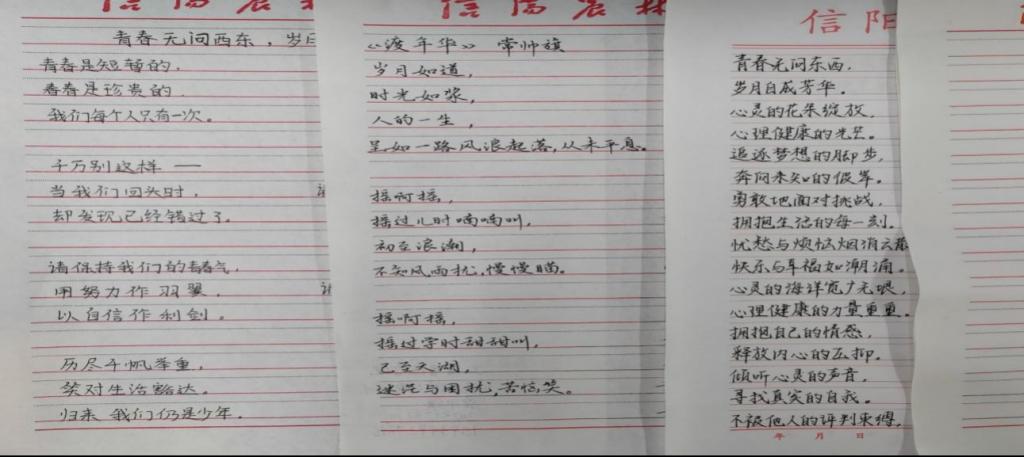 信阳农林
青春无问西东，岁月
青春是短暂的，
青春是珍贵的，
我们每个人只有一次。
千万别这样——
当我们回头时，
却发现已经错过了。
请保持我们的青春气，
用努力作羽翼，
以自信作利剑。
历尽千帆举重，
笑对生活豁达。
归来 我们仍是少年。
信阳农林
《渡年华》 常帅旗
岁月如道，
时光如浆，
人的一生，
呈如一路风浪起落，从未平息。
摇啊摇，
摇过儿时喃喃叫，
初至浪潮，
不知风雨扰，慢慢瞄。
摇啊摇，
摇过学时甜甜叫，
已至天湖，
迷茫与困扰，苦恼笑。
信阳
青春无问东西，
岁月自成芳华。
心灵的花朵绽放，
心理健康的光芒。
追逐梦想的脚步，
奔向未知的彼岸。
勇敢地面对挑战，
拥抱生活的每一刻。
忧愁与烦恼烟消云散
快乐与幸福如潮涌。
心灵的海洋宽广无垠，
心理健康的力量重重。
拥抱自己的情感，
释放内心的压抑。
倾听心灵的声音，
寻找真实的自我。
不被他人的评判束缚，
年 月 日